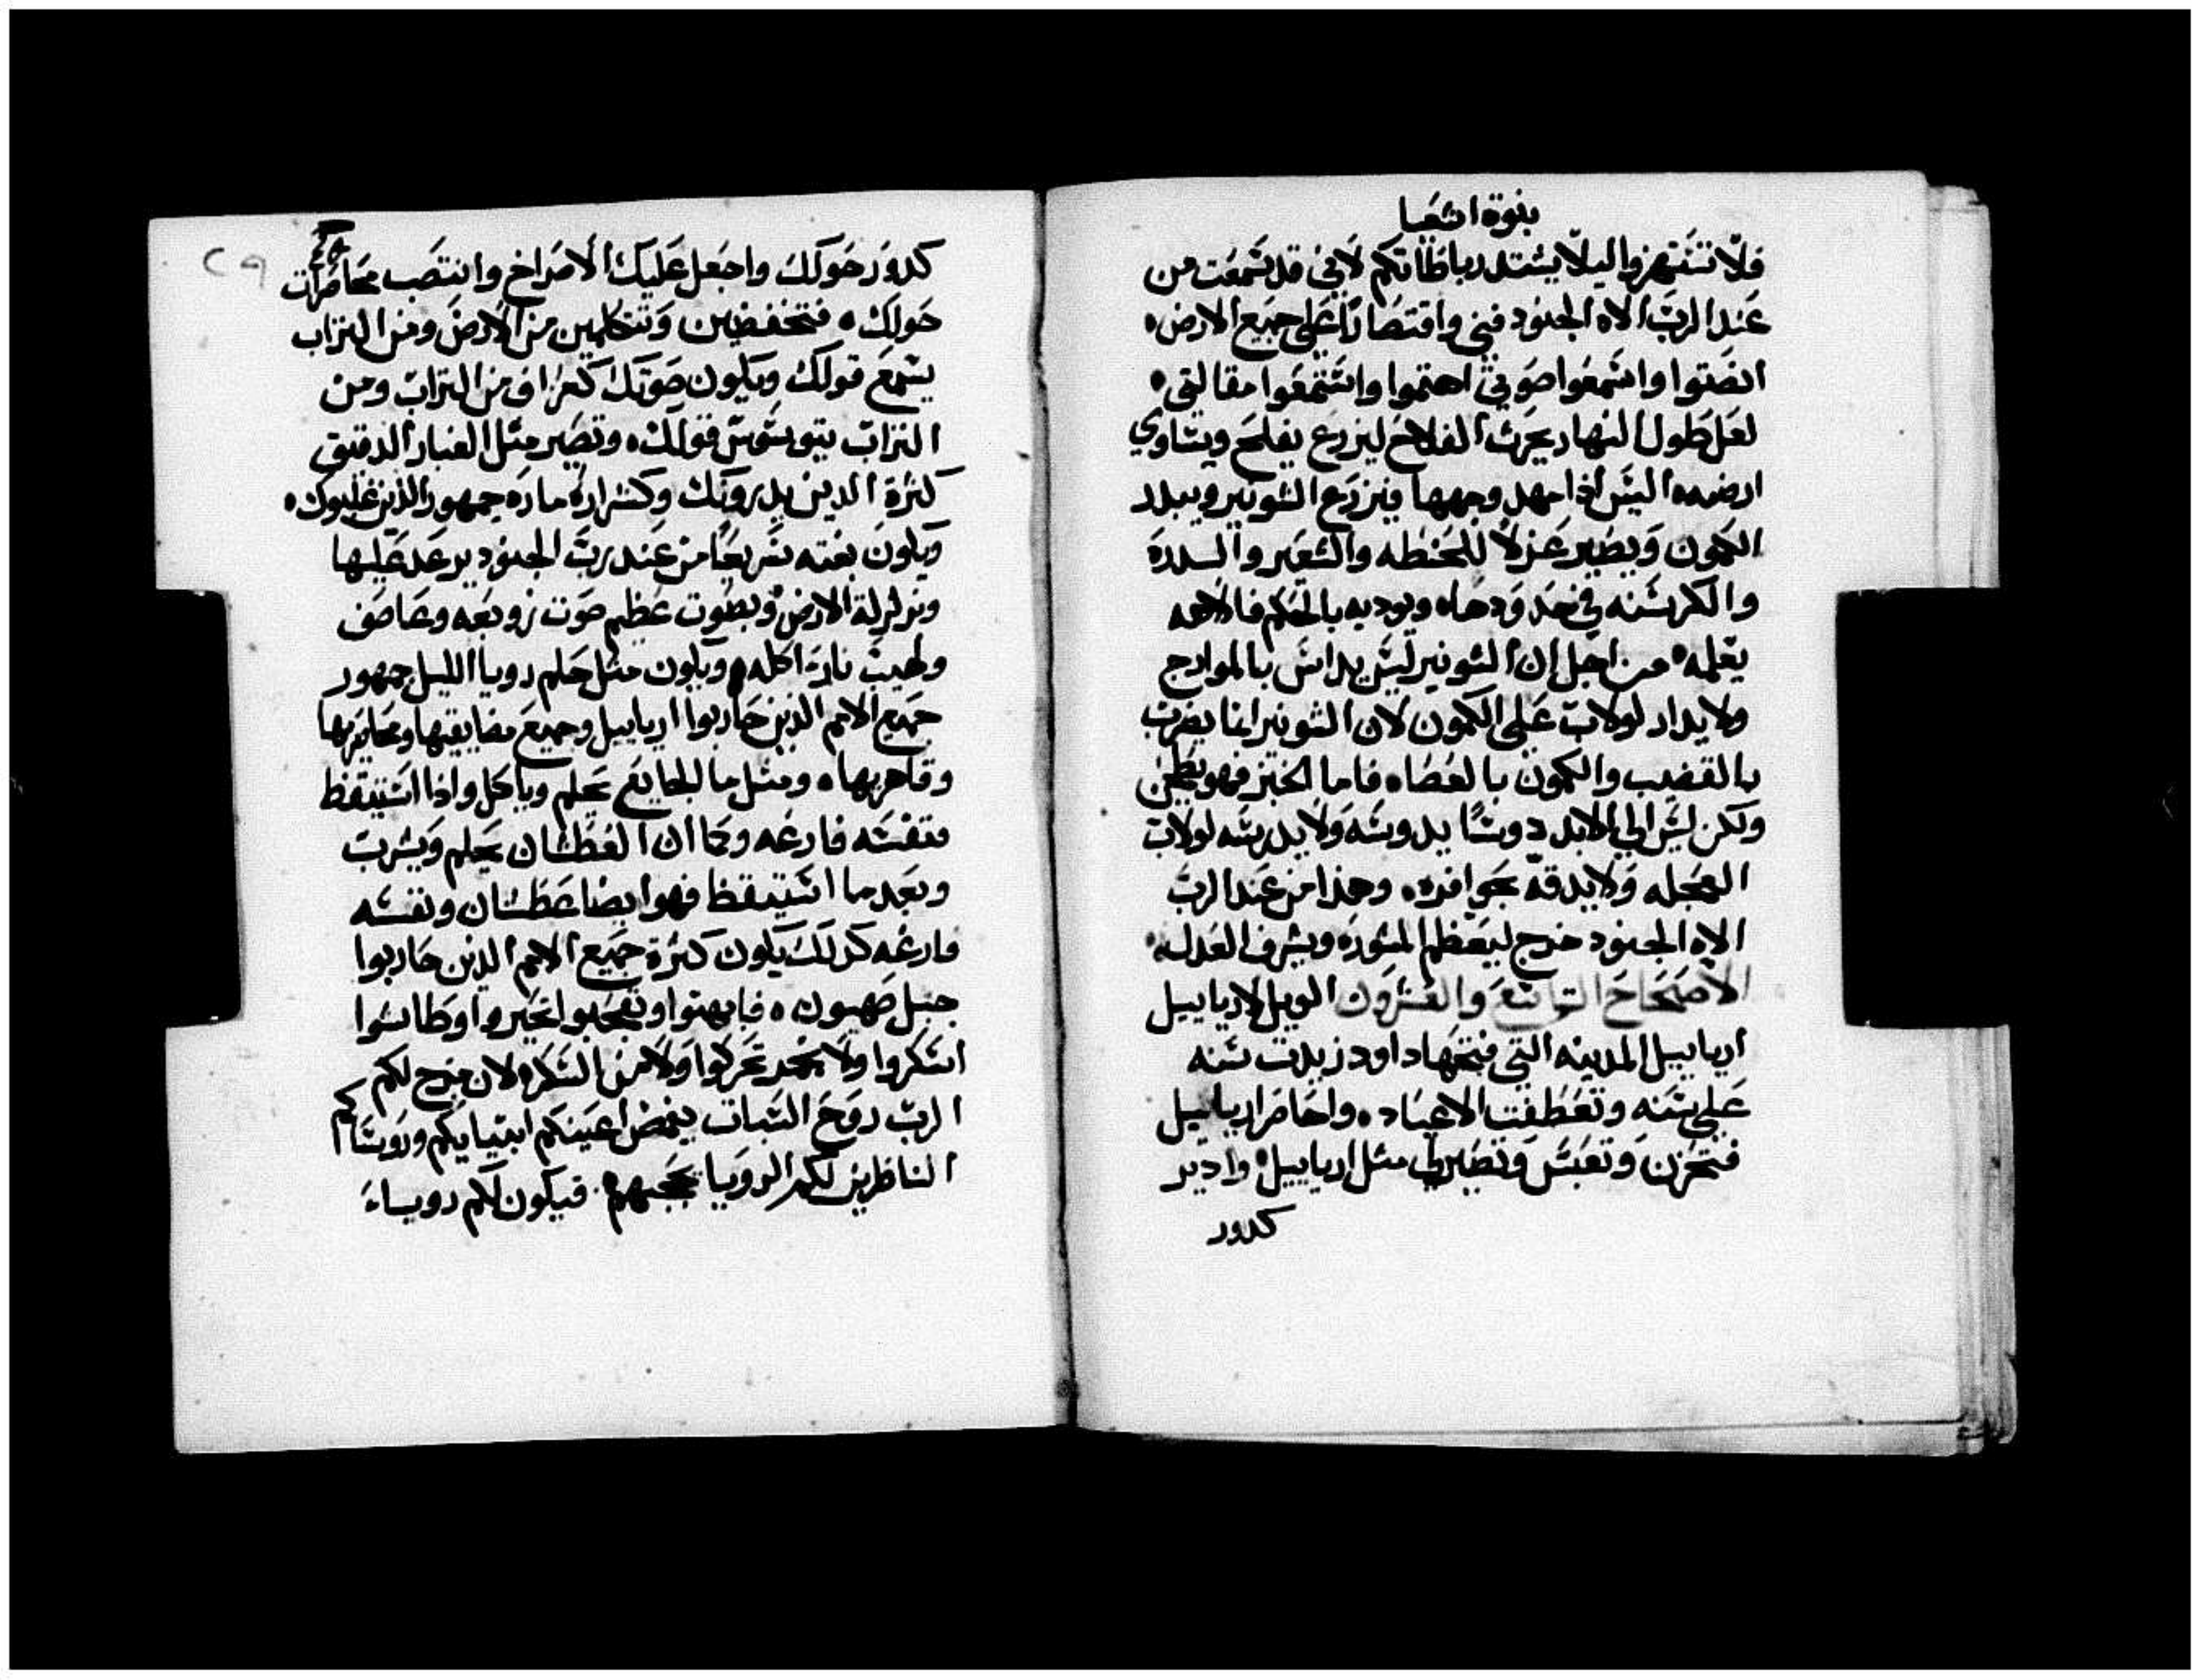 بنوة اشعيا
فلا تنتهزوا ليلا يشتد رباطاتكم لاني قد سمعت من
عند الرب الاه الجنود فني واقتضابا على جميع الارض
انصتوا واسمعوا صوتي اهتموا واستمعوا مقالتي
لعل طول النهار يحرث الفلاح ليزرع يفلح ويساوي
ارضه اليس اذا مهد وجهها فيزرع الشونيز ويبدد
الكمون ويصير عزلا للحنطه والشعير والسدرة
والكرسنه في حدودها ويوديه بالحكم فالاهه
يعلمه من اجل ان الشونيز ليس يداس بالموارج
ولا يدار لولاب على الكمون لان الشونيز انما يضرب
بالقضيب والكمون بالعصا فاما الخبز فهو يطحن
ولكن ليس الي الابد دوسا يدوسه ولا يدرسه لولاب
العجله ولا يدقه بحوافره وهذا من عند الرب
الاه الجنود خرج ليعظم المشورة ويشرف العدل
الاصحاح التاسع والعشرون الويل لارياييل
ارياييل المدينه التي فتحها داود زيدت سنه
على سنه وتعطفت الاعياد واحاصر ارياييل
فتحزن وتعبس وتصير لي مثل ارياييل وادير
كدور
٢٩
كدور حولك واجعل عليك الامراخ وانتصب محاصرات
حولك فتخفضين وتتكلمين من الارض ومن التراب
يسمع قولك ويكون صوتك كعراف من التراب ومن
التراب يتوسوس قولك وتصير مثل الغبار الدقيق
كثرة الدين يدرونك وكشرارة مارة جمهور الذين غلبوك
ويكون بغته سريعا من عند رب الجنود يرعد عليها
وبزلزلة الارض وبصوت عظيم صوت زوبعه وعاصف
ولهيب نار اكله ويكون مثل حلم رويا الليل جمهور
جميع الامم الذين حاربوا ارياييل وجميع مضايقيها ومحاصريها
وقاهريها ومثل ما الجايع يحلم وياكل واذا استيقظ
فنفسه فارغه وكما ان العطشان يحلم ويشرب
وبعد ما استيقظ فهو ايضا عطشان ونفسه
فارغه كذلك يكون كثرة جميع الامم الدين حاربوا
جبل صهيون فابهتوا وتعجبوا تحيروا وطاشوا
اسكروا ولا بخمر تحركوا ولا من السكر لان مزج لكم
الرب روح السبات يغمض اعينكم انبيايكم وروساكم
الناظرين لكم الرويا يحجبهم فيكون لكم روياء